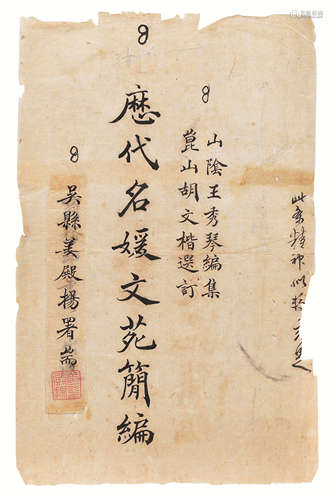 山陰王秀琴編集
崑山胡文楷選訂
歷代名媛文苑簡編
吳縣姜殿揚署耑